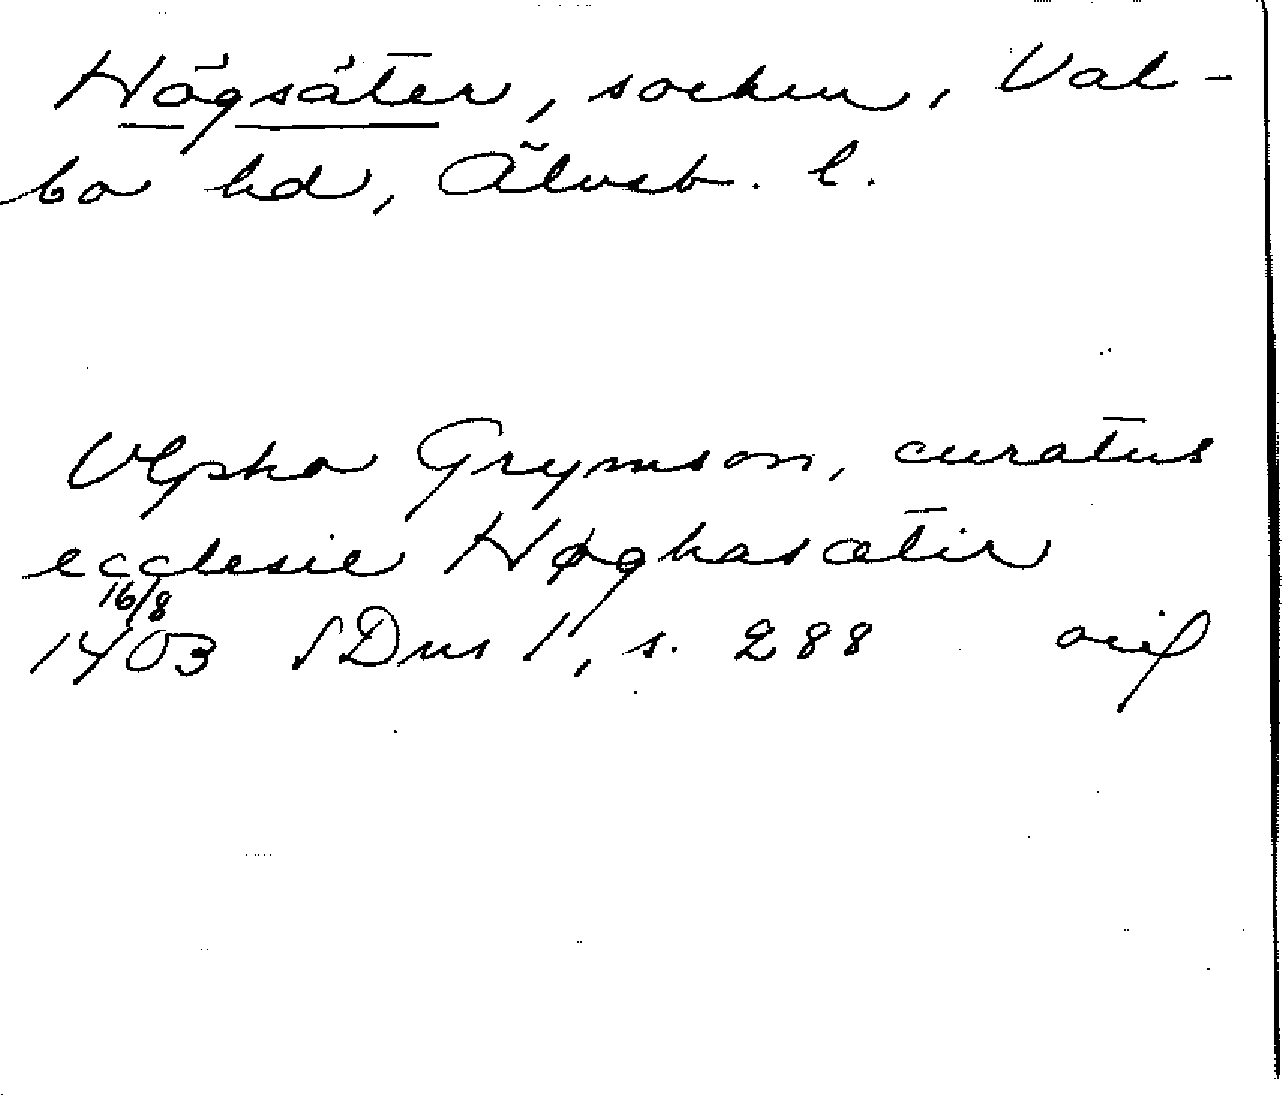 Högsäter, socken, Val-
bo hd, Älvsb. l.
Vlpho Grymson, curatus
ecclesie Høghasætir
16/8
1403 SDns 1, s. 288 orig